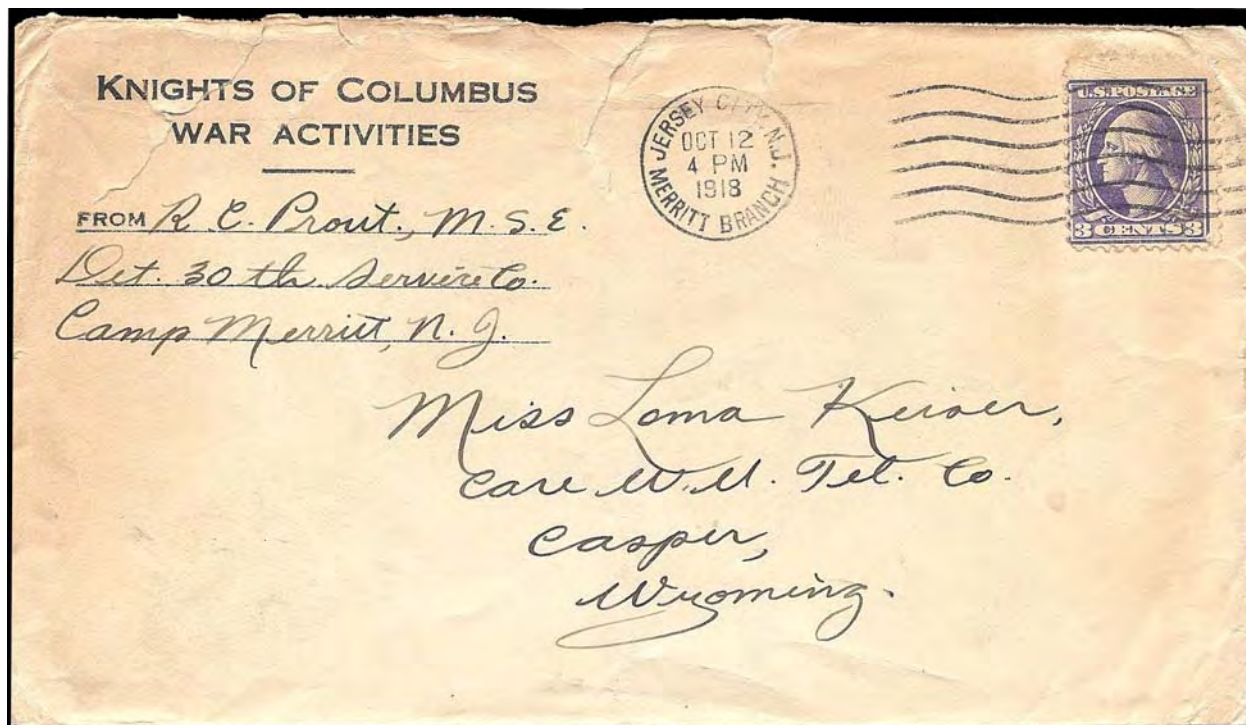 KNIGHTS OF COLUMBUS
WAR ACTIVITIES
FROM R. C. Prout, M. S. E.
Det. 30 th Service Co.
Camp Merritt, N. J.
JERSEY CITY N.J.
OCT 12
4 PM
1918
MERRITT BRANCH
U.S. POSTAGE
3 CENTS 3
Miss Loma Keiser,
Care W. U. Tel. Co.
Casper,
Wyoming.